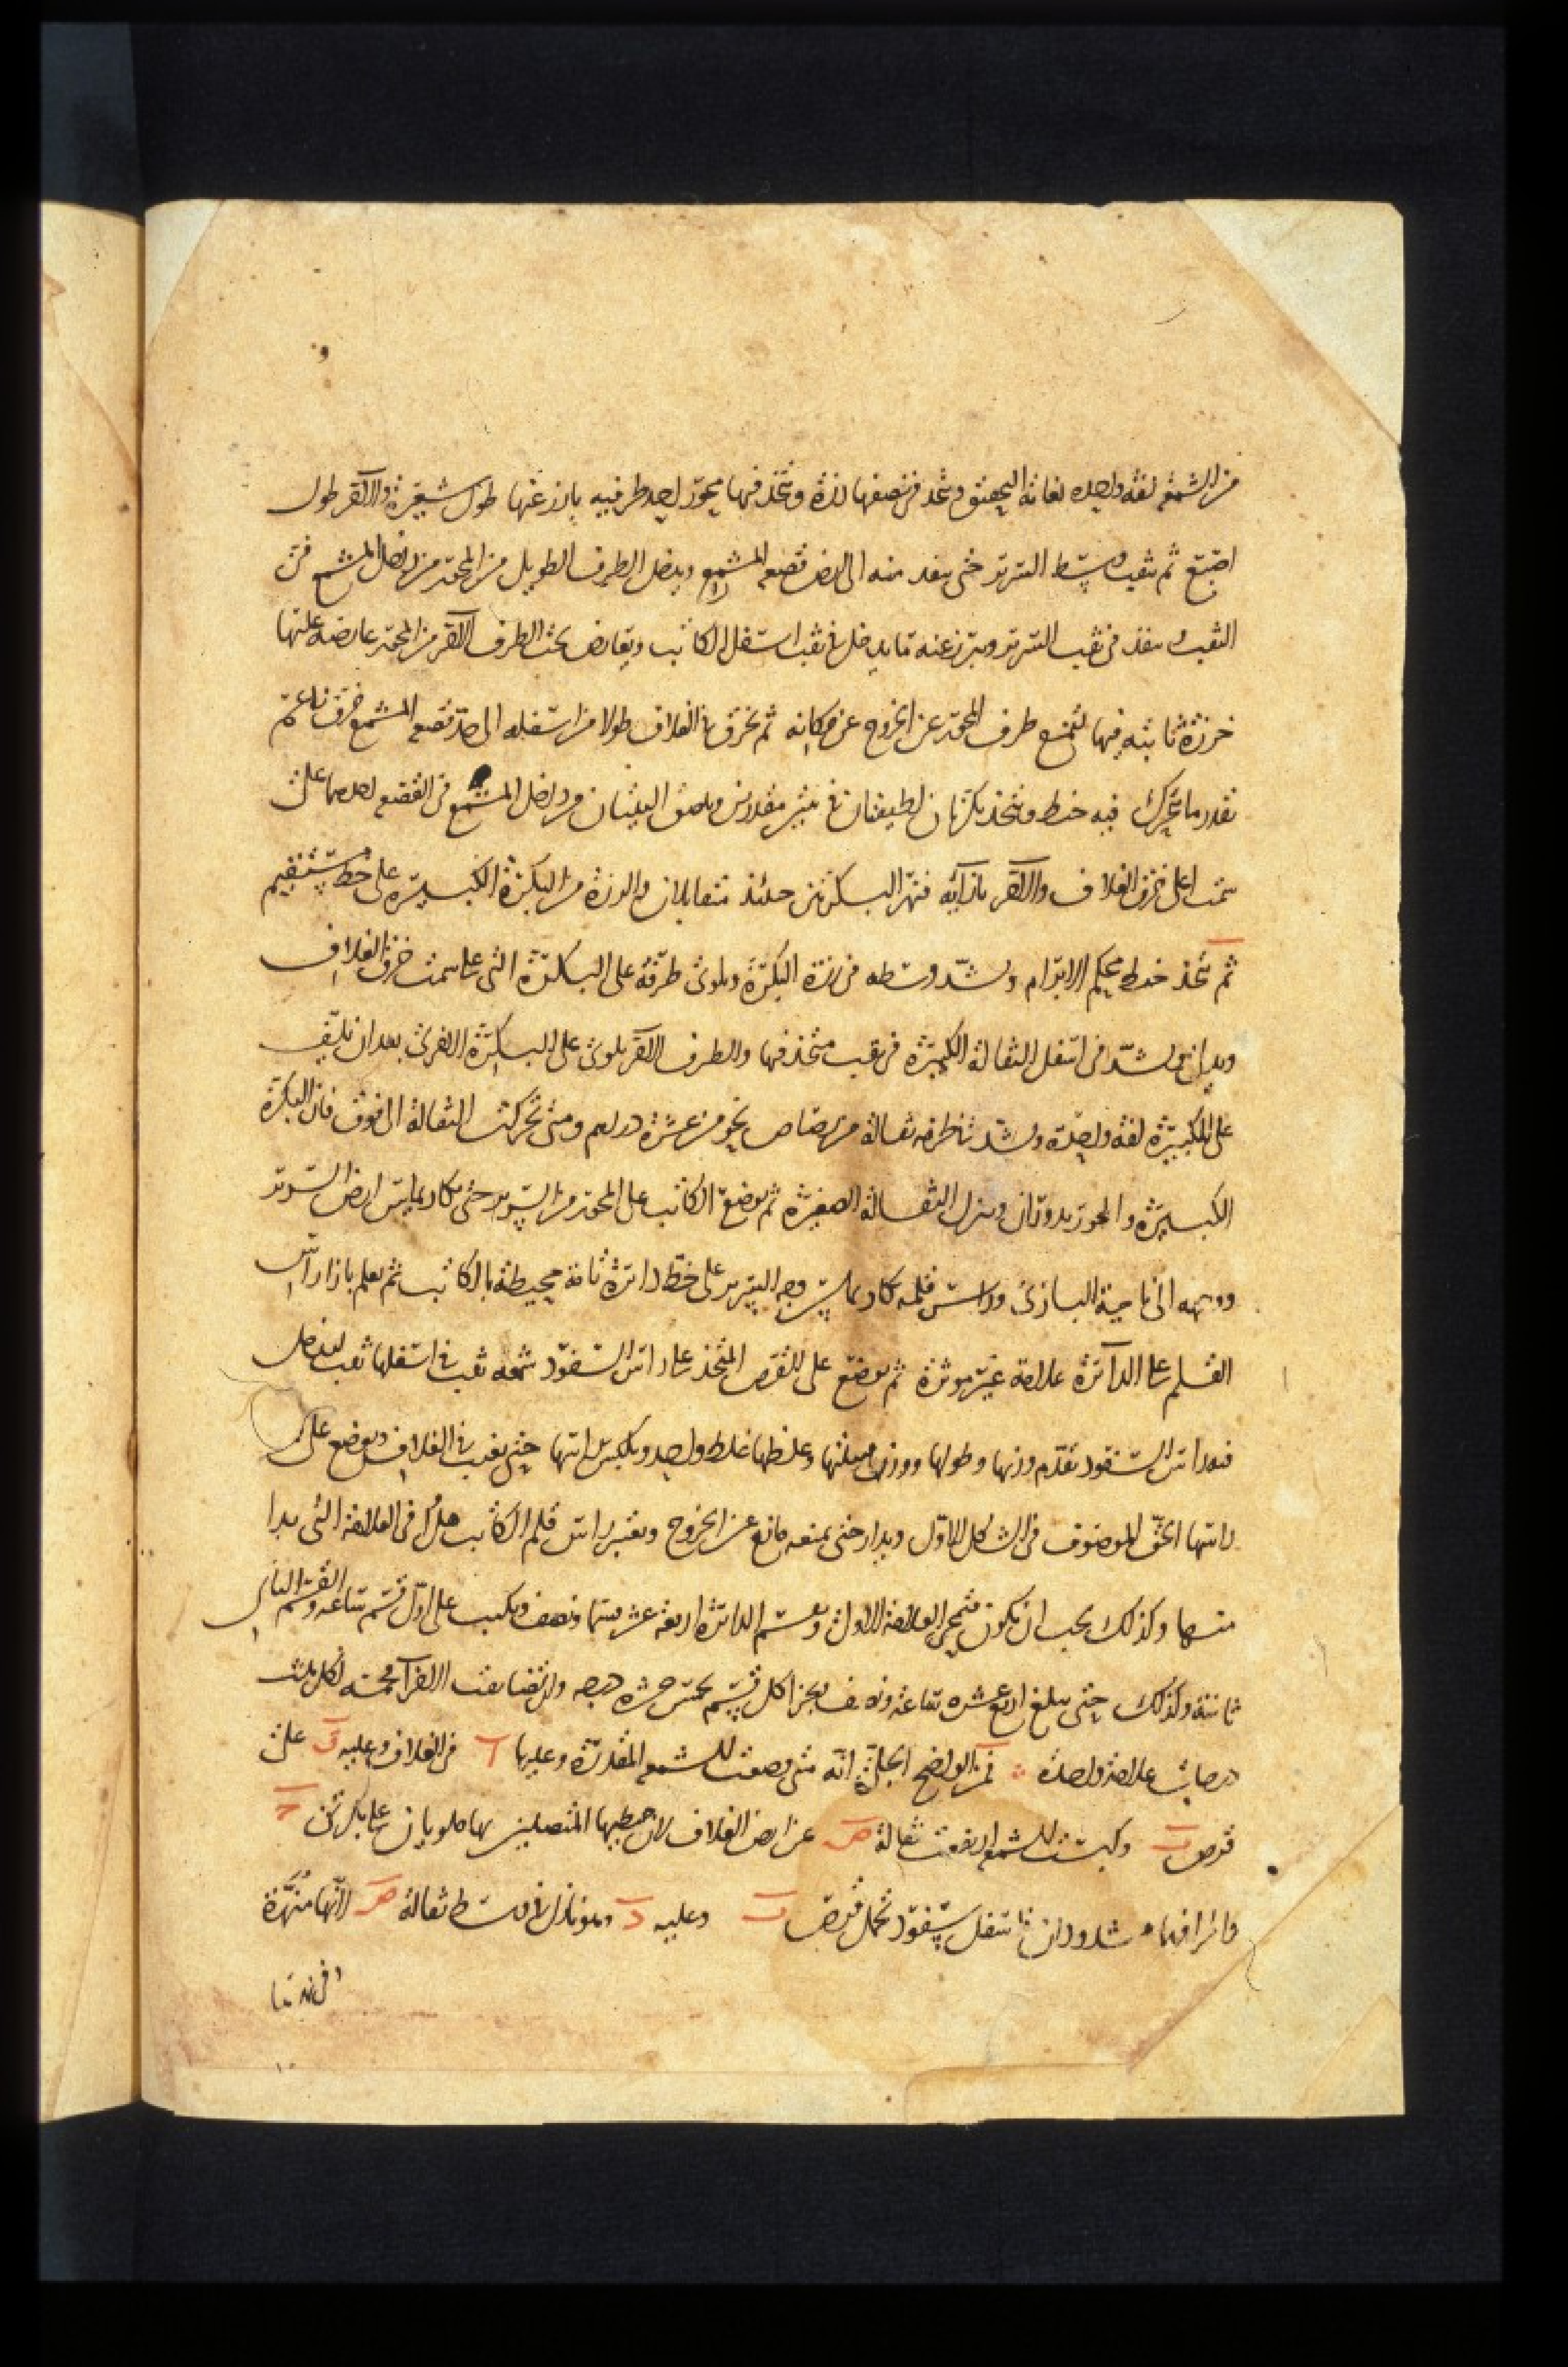 من الشمع لفة واحدة لغاية التحقيق ويتخذ في نصفها رزة ويتخذ فيها محور احد طرفيه بارز عنها طول شعيرة والآخر طول
اصبع ثم يثقب وسط السرير حتى ينفذ منه الى ارض قصعة المشمع ويدخل الطرف الطويل من المحور من داخل المشمع في
الثقب وينفذ في ثقب السرير ويبرز عنه ما يدخل في ثقب اسفل الكاتب ويعارض تحت الطرف الآخر من المحور عارضة عليها
خرزة ثابتة فيها لتمنع طرف المحور عن الخروج عن مكانه ثم يخرق في الغلاف طولا من اسفله الى حد قصعة المشمع خرق ناعم
بقدر ما يتحرك فيه خيط ويتخذ بكرتان لطيفتان في بيتين مقدرين ويلصق البيتان من داخل المشمع في القصعة احدهما على
سمت اعلى خرق الغلاف والآخر بازائه فتصير البكرتين حينئذ متقابلان والرزة من البكرة الكبيرة على خط مستقيم
ثم يتخذ خيط محكم الابرام ويشد وسطه في رزة البكرة ويلوى طرفه على البكرة التي على سمت خرق الغلاف
ويدلى ويشد في اسفل الثقالة الكبيرة في ثقب متخذ فيها والطرف الآخر يلوى على البكرة الاخرى بعد ان يلف
على الكبيرة لفة واحدة ويشد في طرفه ثقالة من رصاص نحو من عشرة دراهم ومتى تحركت الثقالة الى فوق فان البكرة
الكبيرة والمحور يدوران وينزل الثقالة الصغيرة ثم يوضع الكاتب على المحور من السرير حتى يكاد يماس ارض السرير
ووجهه الى ناحية البازى وراس قلمه يكاد يماس وجه السرير على خط دائرة تامة محيطة بالكاتب ثم يعلم بازاء راس
القلم على الدائرة علامة غير مؤثرة ثم يوضع على القرص المتخذ على راس السفود شمعة ثقب في اسفلها ثقب ليدخل
فيه راس السفود تقدم وزنها وطولها ووزن فتيلتها وغلظها غلظ واحد ويكبس راسها حتى يغيب في الغلاف ويوضع على
راسها الحق الموصوف في الشكل الاول ويدار حتى يمنعه مانع عن الخروج ويعتبر راس قلم الكاتب هل هو في العلامة التي بدا
منها وكذلك يجب ان يكون فتمحى العلامة الاولى ويقسم الدائرة اربعة عشر قسما ونصف ويكتب على اول قسم ساعة والقسم الثاني
ثانية وكذلك حتى يبلغ اربع عشرة ساعة ونصف ويجزأ كل قسم بخمس عشرة درجة وان تضايقت الاجزاء فخمسة لكل ثلث
درجات علامة واحدة ∴ فمن الواضح الجلى انه متى وضعت الشمعة المقدرة وعليها آ في الغلاف وعليه ق على
قرص ب وكبست الشمعة ارتفعت ثقالة ص عن ارض الغلاف لان خيطيها المتصلين بها ملويان على بكرتى ح
واطرافهما مشدودان في اسفل سفود تحمل قرص ب وعليه د وهو نازل في وسط ثقالة ص لانها منهرة